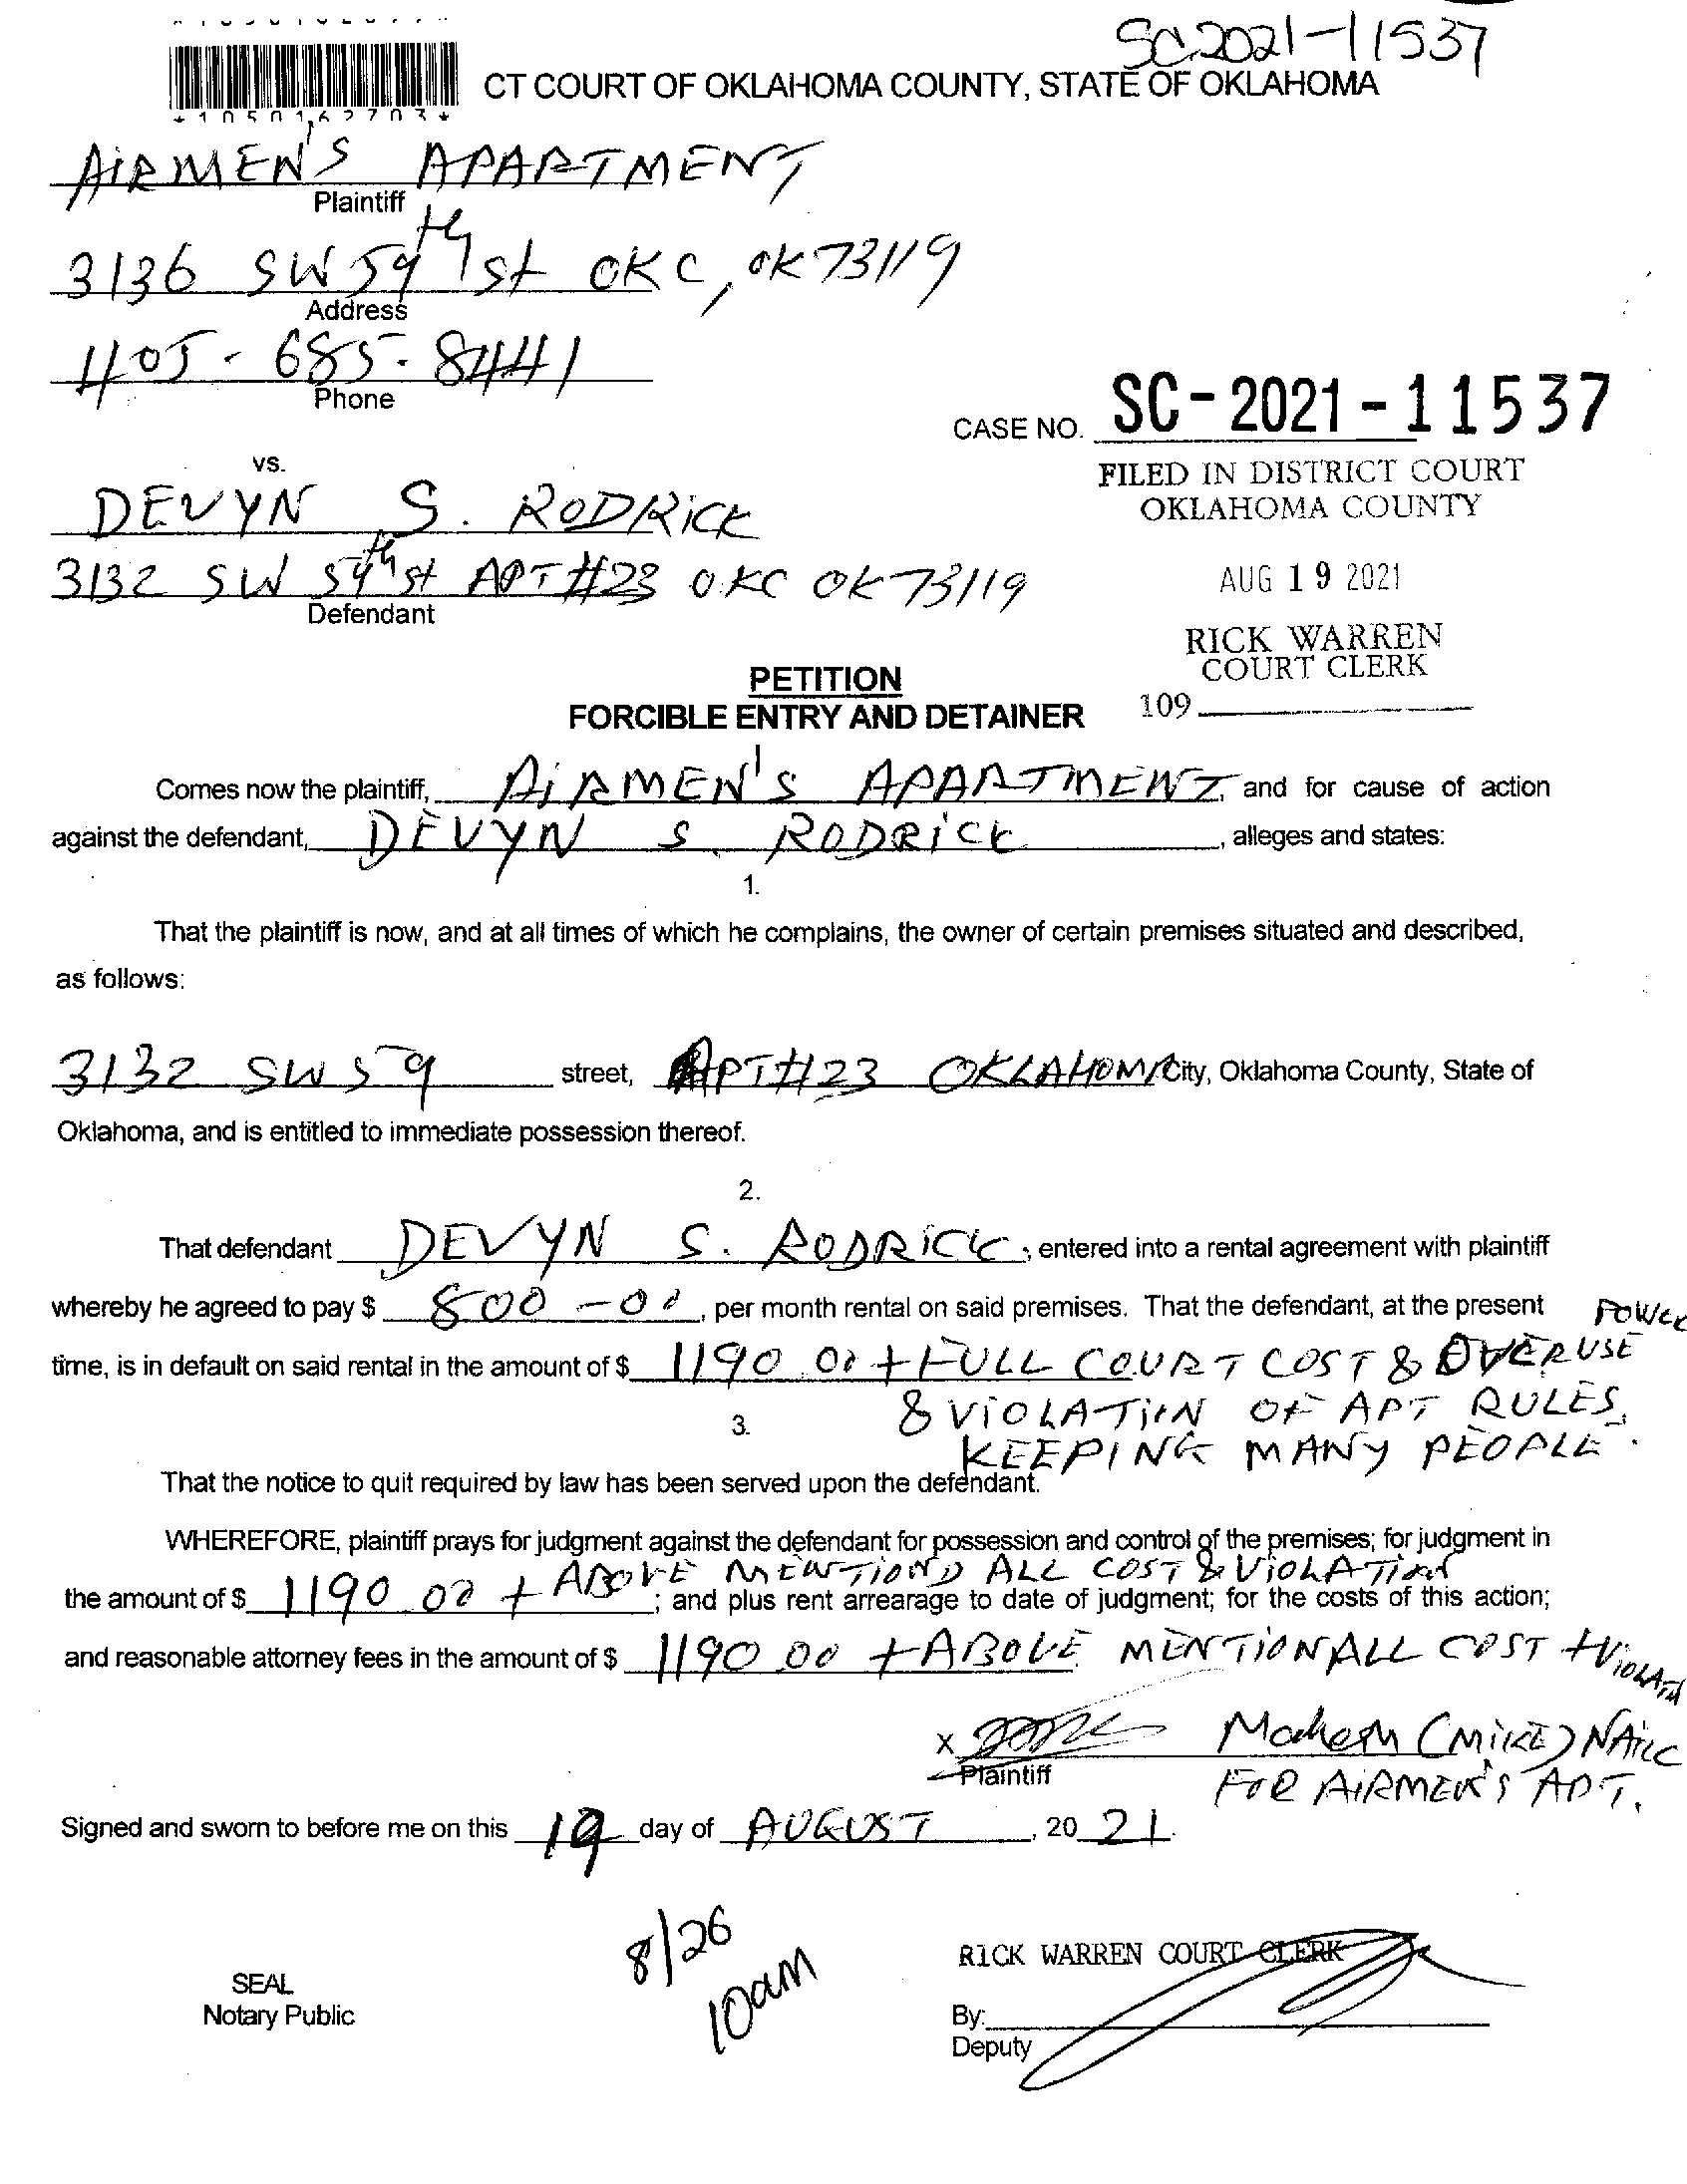 SC 2021-11537
CT COURT OF OKLAHOMA COUNTY, STATE OF OKLAHOMA
AiRMEN'S APARTMENT
Plaintiff
3136 SW 59th St OKC, OK 73119
Address
405 - 685 - 8441
Phone
CASE NO. SC-2021-11537
vs.
FILED IN DISTRICT COURT
OKLAHOMA COUNTY
DEVYN S. RODRiCK
3132 SW 59th st APT #23 OKC OK 73119
Defendant
AUG 19 2021
RICK WARREN
COURT CLERK
109
PETITION
FORCIBLE ENTRY AND DETAINER
Comes now the plaintiff, AiRMEN'S APARTMENT, and for cause of action
against the defendant, DEVYN S. RODRiCK, alleges and states:
1.
That the plaintiff is now, and at all times of which he complains, the owner of certain premises situated and described,
as follows:
3132 SW 59 street, APT #23 OKLAHOMA City, Oklahoma County, State of
Oklahoma, and is entitled to immediate possession thereof.
2.
That defendant DEVYN S. RODRiCK, entered into a rental agreement with plaintiff
whereby he agreed to pay $ 800 -00, per month rental on said premises. That the defendant, at the present
POWER
time, is in default on said rental in the amount of $ 1190.00 + FULL COURT COST & OVERUSE
& ViOLATiON OF APT RULES,
3.
KEEPING MANY PEOPLE.
That the notice to quit required by law has been served upon the defendant.
WHEREFORE, plaintiff prays for judgment against the defendant for possession and control of the premises; for judgment in
the amount of $ 1190.00 + ABOVE MENTIOND ALL COST & ViOLATiON; and plus rent arrearage to date of judgment; for the costs of this action;
and reasonable attorney fees in the amount of $ 1190.00 + ABOVE MENTiON ALL COST +
x Mahesh (MiKE) NAiK
Plaintiff
FOR AiRMEN'S APT.
Signed and sworn to before me on this 19 day of AUGUST, 20 21.
8/26
10am
RICK WARREN COURT CLERK
SEAL
Notary Public
By:
Deputy